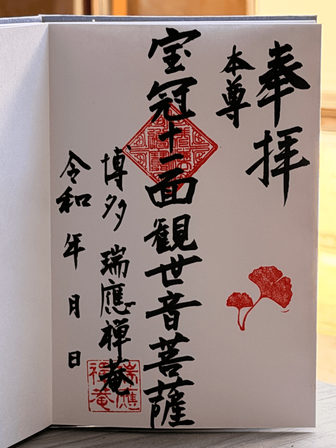 奉拝
本尊
宝冠十一面観世音菩薩
博多 瑞應禅庵
令和 年 月 日
瑞應
禅庵